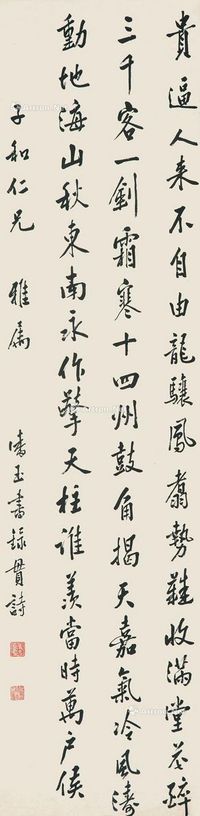 貴逼人来不自由龍驤鳳翥勢難收滿堂花醉
三千客一劍霜寒十四州鼓角揭天嘉氣冷風濤
動地海山秋東南永作擎天柱誰羨當時萬户侯
子和仁兄 雅屬
潘玉書錄貫詩